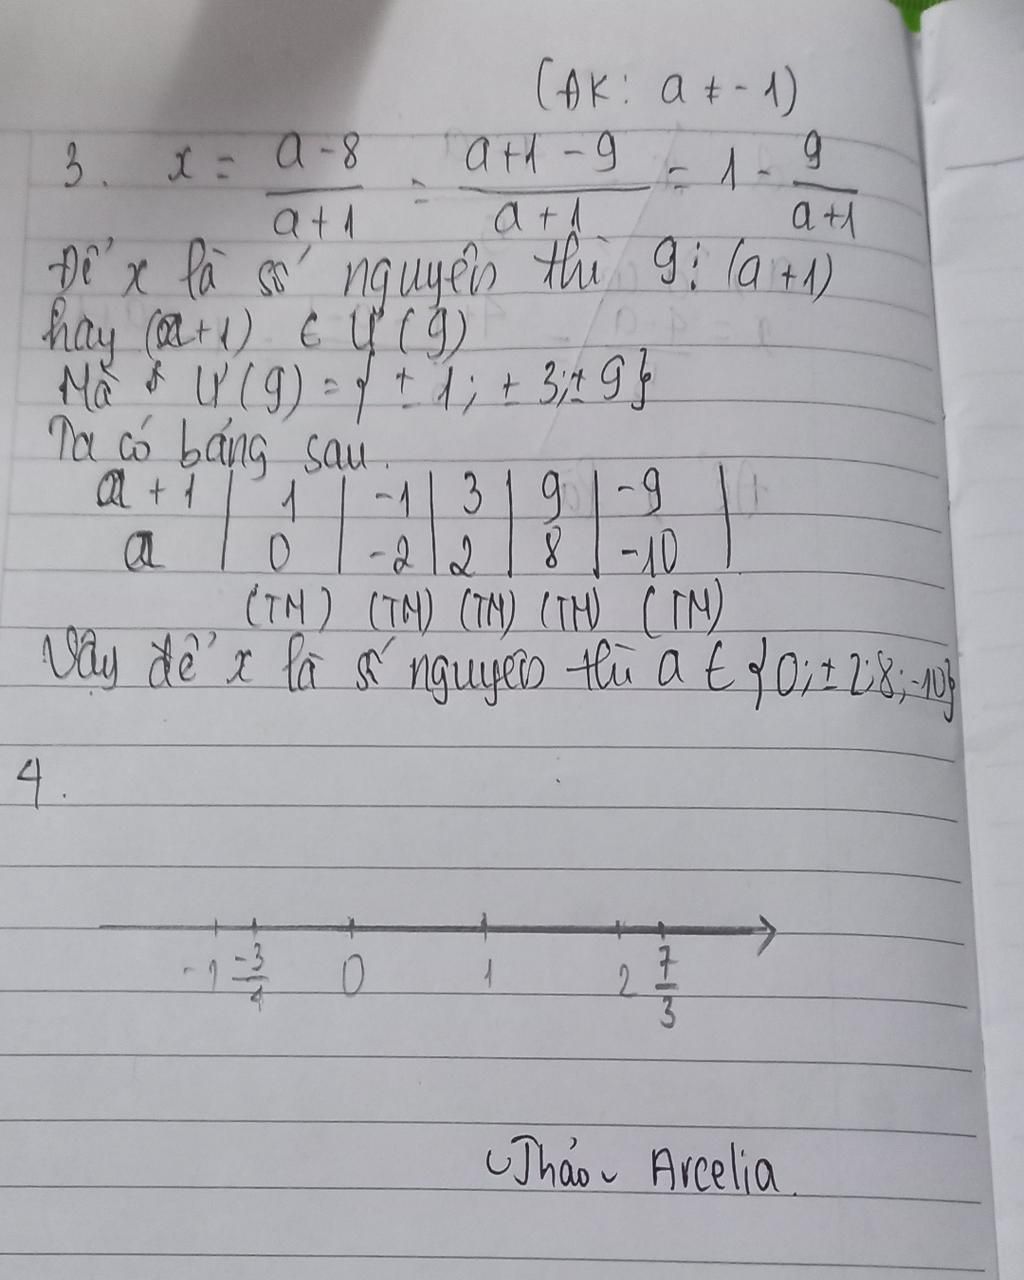 (ĐK: a ≠ -1)
3. x = \frac{a-8}{a+1} = \frac{a+1-9}{a+1} = 1 - \frac{9}{a+1}
Để x là số nguyên thì 9 ⋮ (a+1)
hay (a+1) ∈ Ư(9)
Mà Ư(9) = {±1; ±3; ±9}
Ta có bảng sau.
a + 1 | 1 | -1 | 3 | 9 | -9 |
a | 0 | -2 | 2 | 8 | -10 |
(TM) (TM) (TM) (TM) (TM)
Vậy để x là số nguyên thì a ∈ {0; ±2; 8; -10}
4.
-1 \frac{-3}{4} 0 1 2 \frac{7}{3}
Thảo Arcelia.